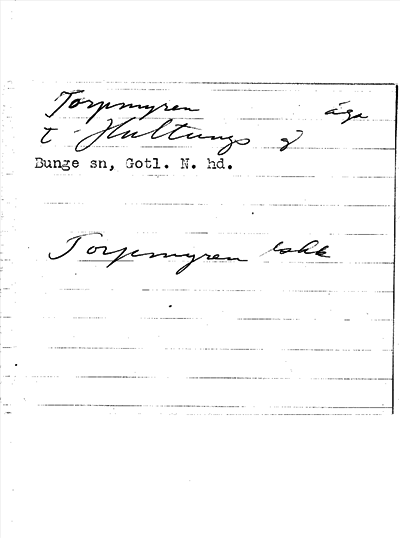 Torpmyren äga
t Hultungs g
Bunge sn, Gotl. N. hd.
Torpmyren lskk